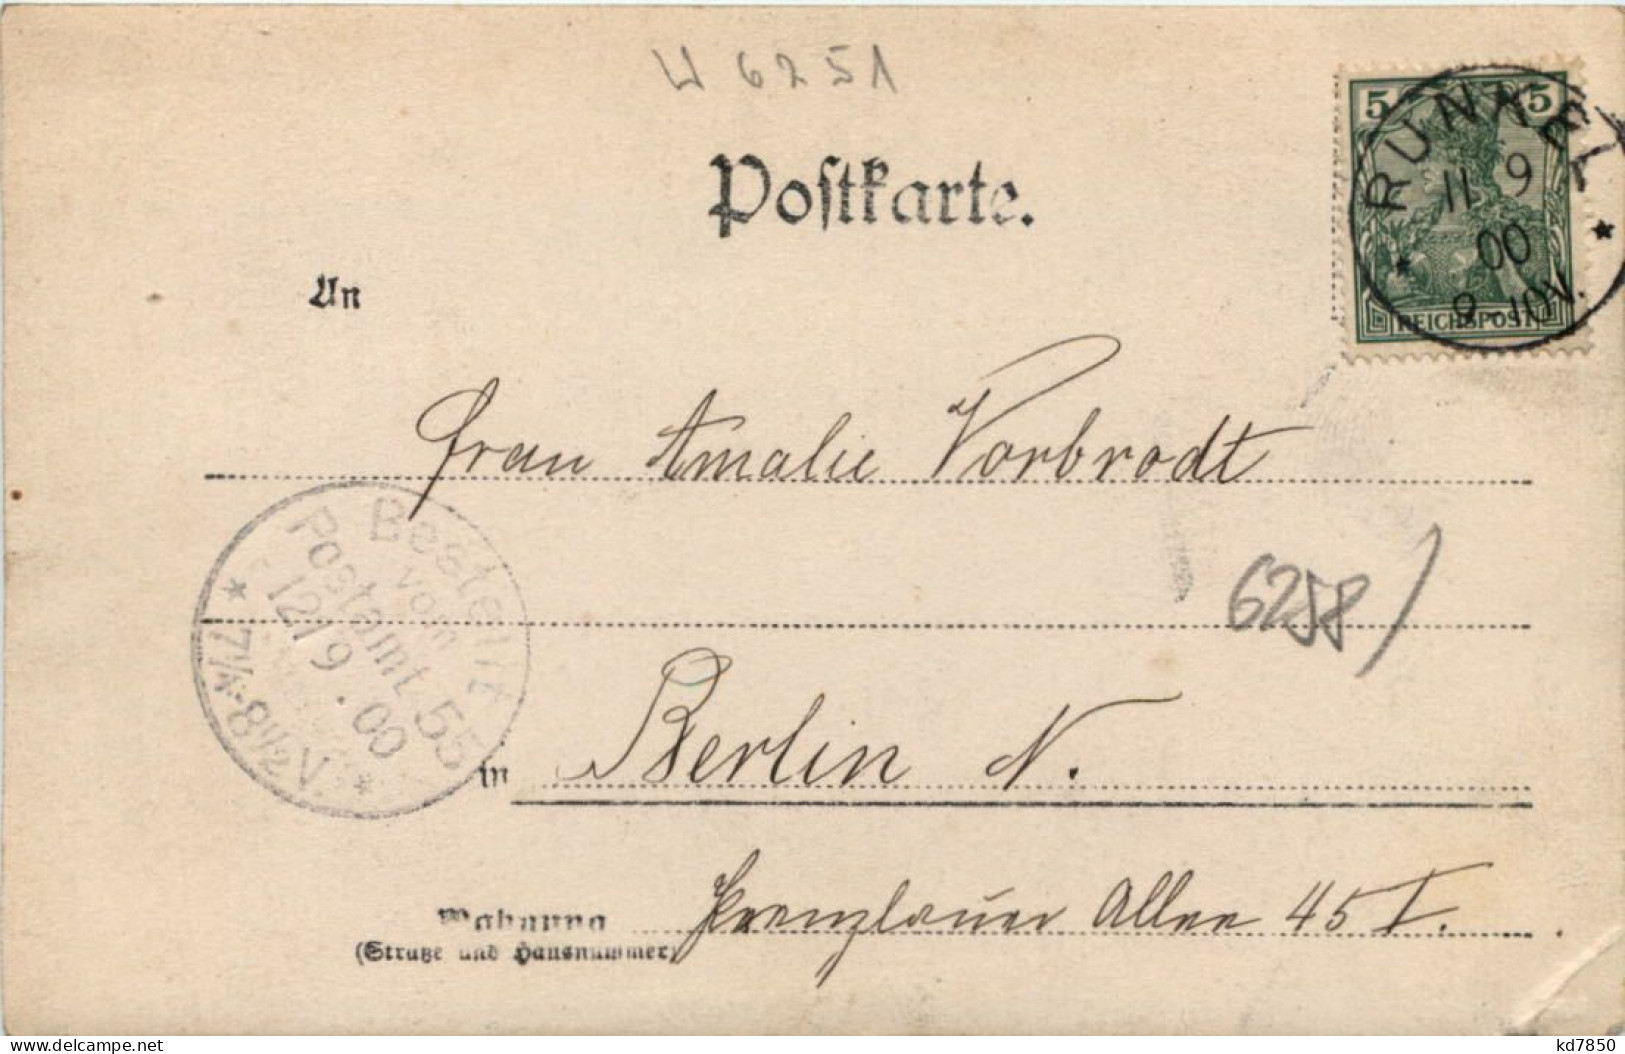 W 6251
5 5
REICHSPOST
RUNKEL
11 9
00
9-10V.
Postkarte.
An
Frau Amalie Vorbrodt
6258
Bestellt
vom
Postamt 55
12/9.00
7¼-8½V.
in Berlin N.
Wohnung Prenzlauer Allee 45 I.
(Straße und Hausnummer)
www.delcampe.net
kd7850